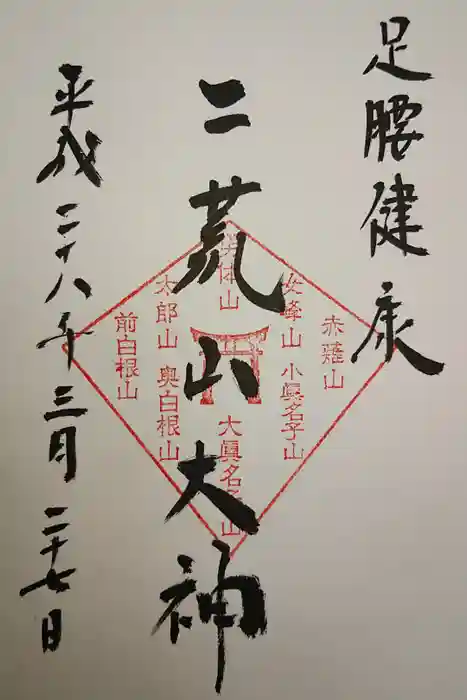 足腰健康
二荒山大神
平成二十八年三月二十七日
赤薙山
女峰山
小眞名子山
男体山
大眞名子山
太郎山
奥白根山
前白根山